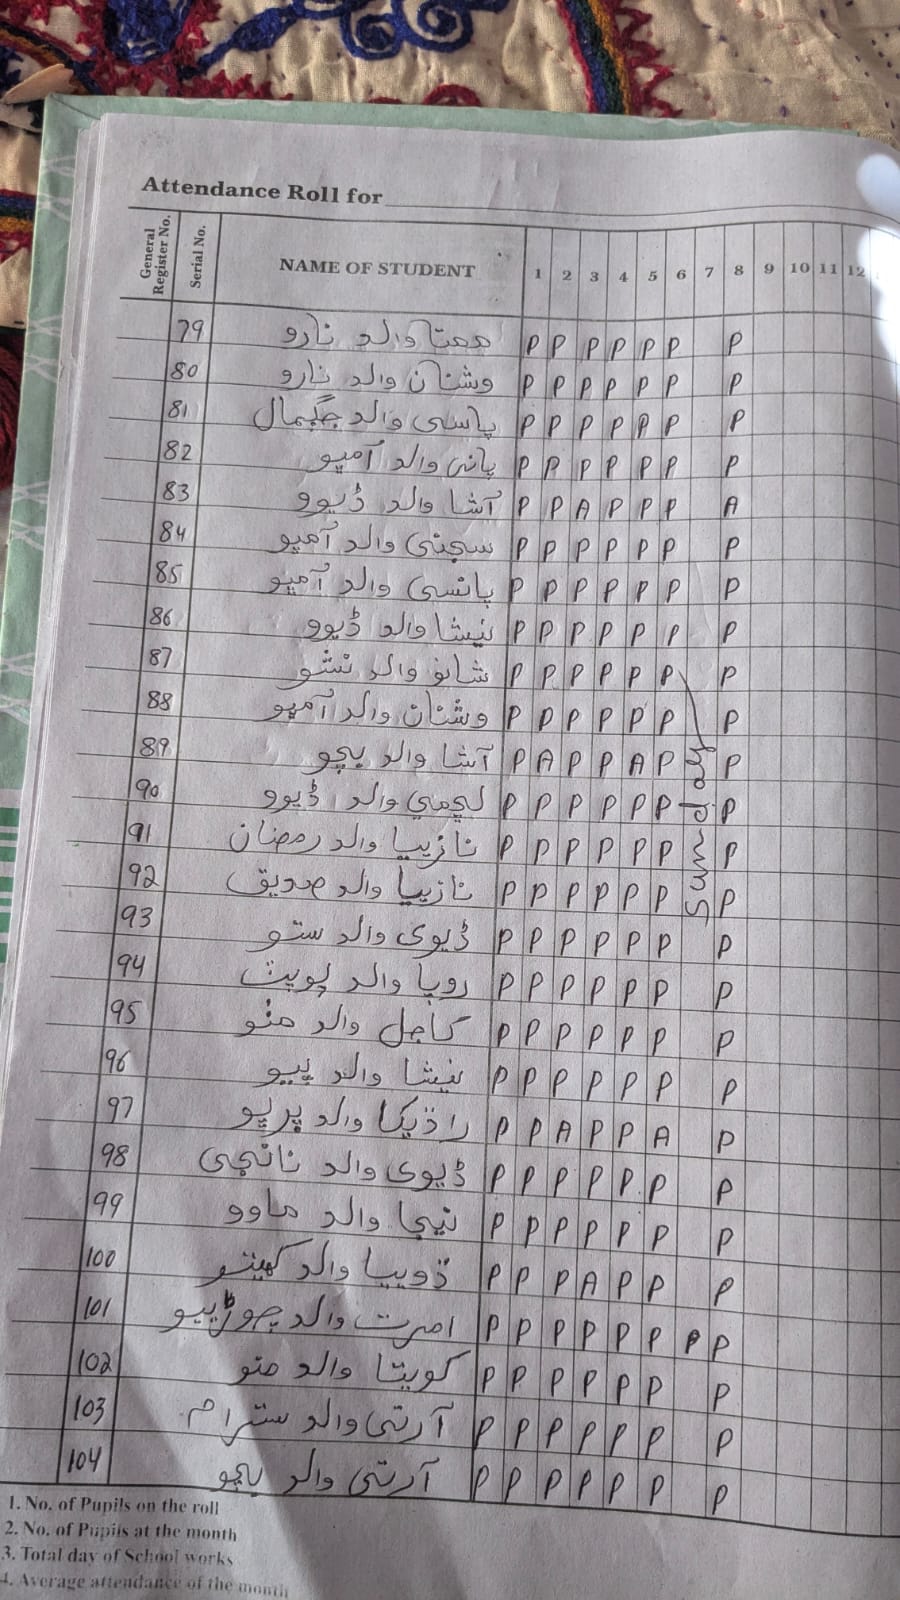 Attendance Roll for
General Register No. Serial No. NAME OF STUDENT 1 2 3 4 5 6 7 8 9 10 11 12
79 ممتا والد نارو P P P P P P P
80 وشنان والد نارو P P P P P P P
81 پاسی والد جگمال P P P P A P P
82 پانی والد آمپو P P P P P P P
83 آشا والد ڈیوو P P A P P P A
84 سجنی والد آمپو P P P P P P P
85 پانسی والد آمپو P P P P P P P
86 نیشا والد ڈیوو P P P P P P P
87 شانو والد نشو P P P P P P P
88 وشنان والد آمپو P P P P P P P
89 آشا والد بچو P A P P A P P
90 لچمي والد ڈیوو P P P P P P P
91 نازیبا والد رمضان P P P P P P P
92 نازیبا والد صدیق P P P P P P P
Sunday
93 ڈیوی والد ستو P P P P P P P
94 روپا والد پوپٹ P P P P P P P
95 کاجل والد منو P P P P P P P
96 نیشا والد پیپو P P P P P P P
97 راڌیکا والد پرپو P P A P P A P
98 ڈیوی والد نانجی P P P P P P P
99 نیجا والد ماوو P P P P P P P
100 والد کھیتو P P P A P P P
101 امرت والد P P P P P P P P
102 کویتا والد منو P P P P P P P
103 آرتی والد سترام P P P P P P P
104 آرتی والد بچو P P P P P P P
1. No. of Pupils on the roll
2. No. of Pupils at the month
3. Total day of School works
4. Average attendance of the month